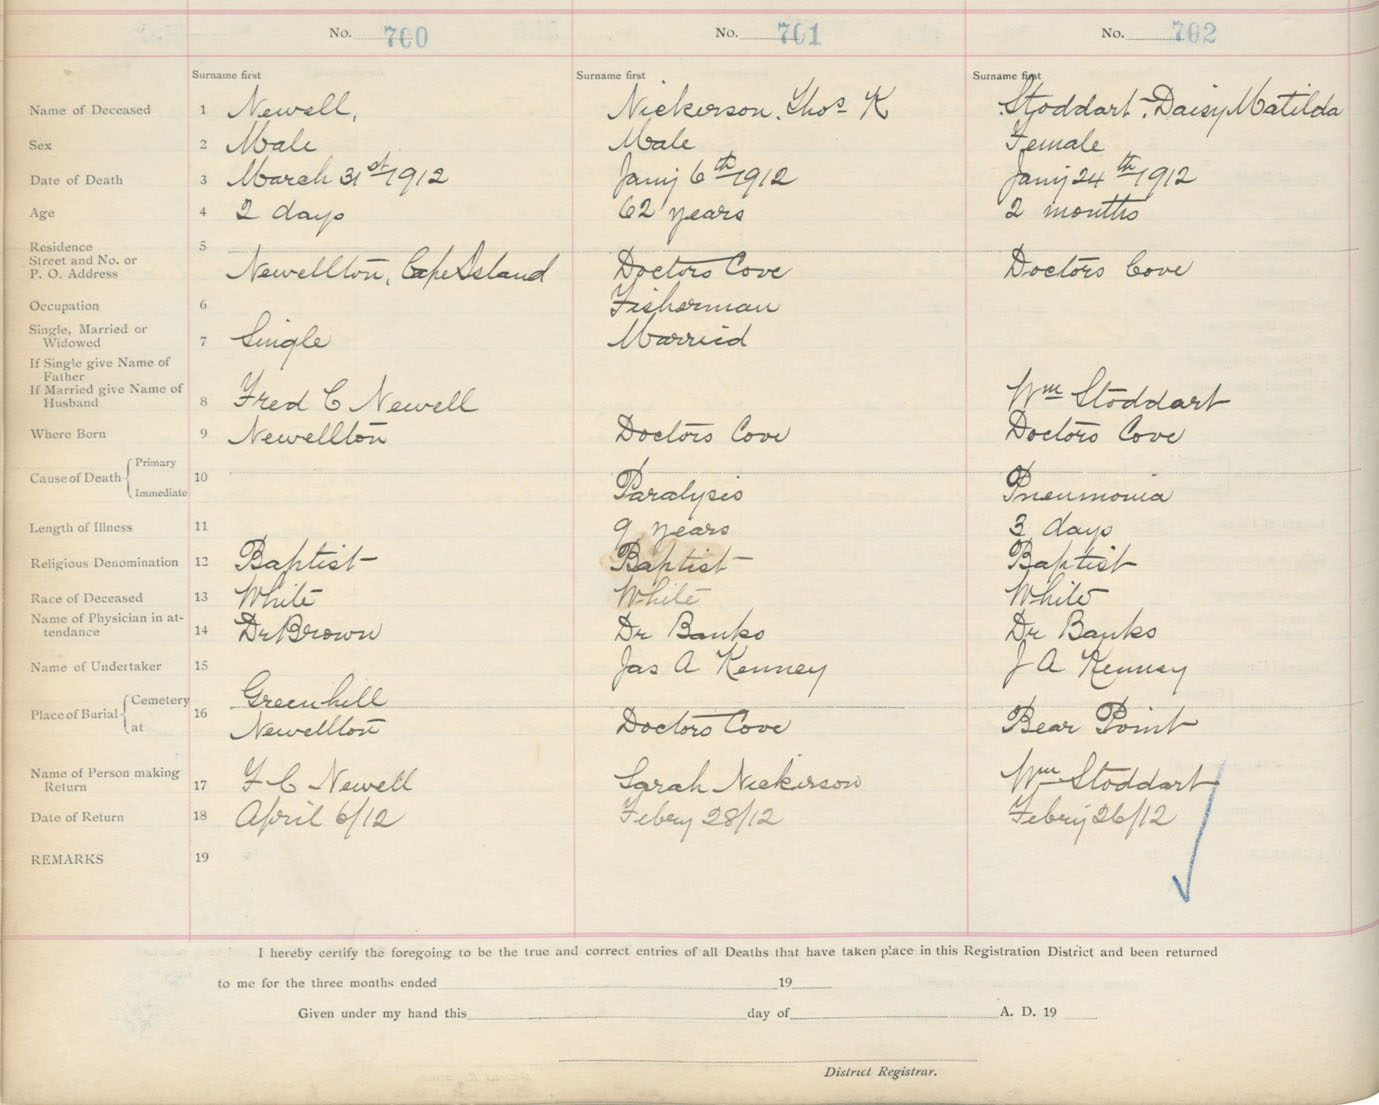 No. 700 No. 701 No. 702
Surname first Surname first Surname first
Name of Deceased 1 Newell, Nickerson, Thos K Stoddart, Daisy Matilda
Sex 2 Male Male Female
Date of Death 3 March 31st 1912 Jany 6th 1912 Jany 24th 1912
Age 4 2 days 62 years 2 months
Residence 5
Street and No. or
P. O. Address Newellton, Cape Island Doctors Cove Doctors Cove
Occupation 6 Fisherman
Single, Married or
Widowed 7 Single Married
If Single give Name of
Father
If Married give Name of
Husband 8 Fred C Newell Wm Stoddart
Where Born 9 Newellton Doctors Cove Doctors Cove
Primary
Cause of Death 10
Immediate Paralysis Pneumonia
Length of Illness 11 9 years 3 days
Religious Denomination 12 Baptist Baptist Baptist
Race of Deceased 13 White White White
Name of Physician in at-
tendance 14 Dr Brown Dr Banks Dr Banks
Name of Undertaker 15 Jas A Kenney J A Kenney
Cemetery Greenhill
Place of Burial 16
at Newellton Doctors Cove Bear Point
Name of Person making
Return 17 F C Newell Sarah Nickerson Wm Stoddart
Date of Return 18 April 6/12 Febry 28/12 Febry 26/12
REMARKS 19
I hereby certify the foregoing to be the true and correct entries of all Deaths that have taken place in this Registration District and been returned
to me for the three months ended 19
Given under my hand this day of A. D. 19
District Registrar.